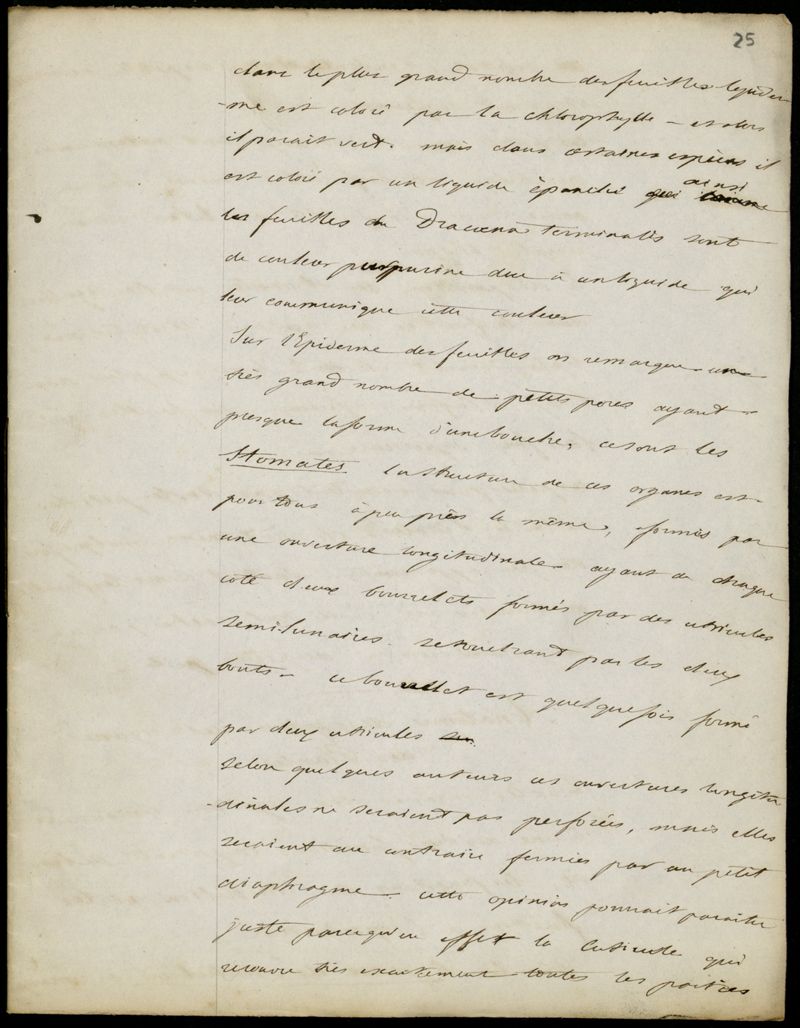 25
dans le plus grand nombre des feuilles l'epider-
-me est coloré par la chlorophylle - et alors
il parait vert. mais dans certaines espèces il
est coloré par un liquide épanché qui ainsi comme
les feuilles du Dracoena terminalis sont
de couleur purpurine due à un liquide qui
leur communique cette couleur
Sur l'Epiderme des feuilles on remarque un
très grand nombre de petits pores ayant
presque la forme d'une bouche, ce sont les
Stomates. La structure de ces organes est
pour tous à peu près la même, formés par
une ouverture longitudinale ayant de chaque
coté deux bourrelets formés par des utricules
semilunaires se touchant par les deux
bouts - ce bourrelet est quelquefois formé
par deux utricules
Selon quelques auteurs ces ouvertures longitu
-dinales ne seraient pas perforées, mais elles
seraient au contraire fermées par un petit
diaphragme. cette opinion pourrait paraitre
juste parcequ'en effet la Cuticule qui
recouvre très exactement toutes les parties